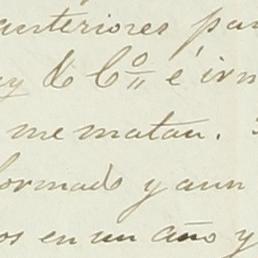 anteriores par
y & Co é irm
me matan.
formado y aun
os en un año y